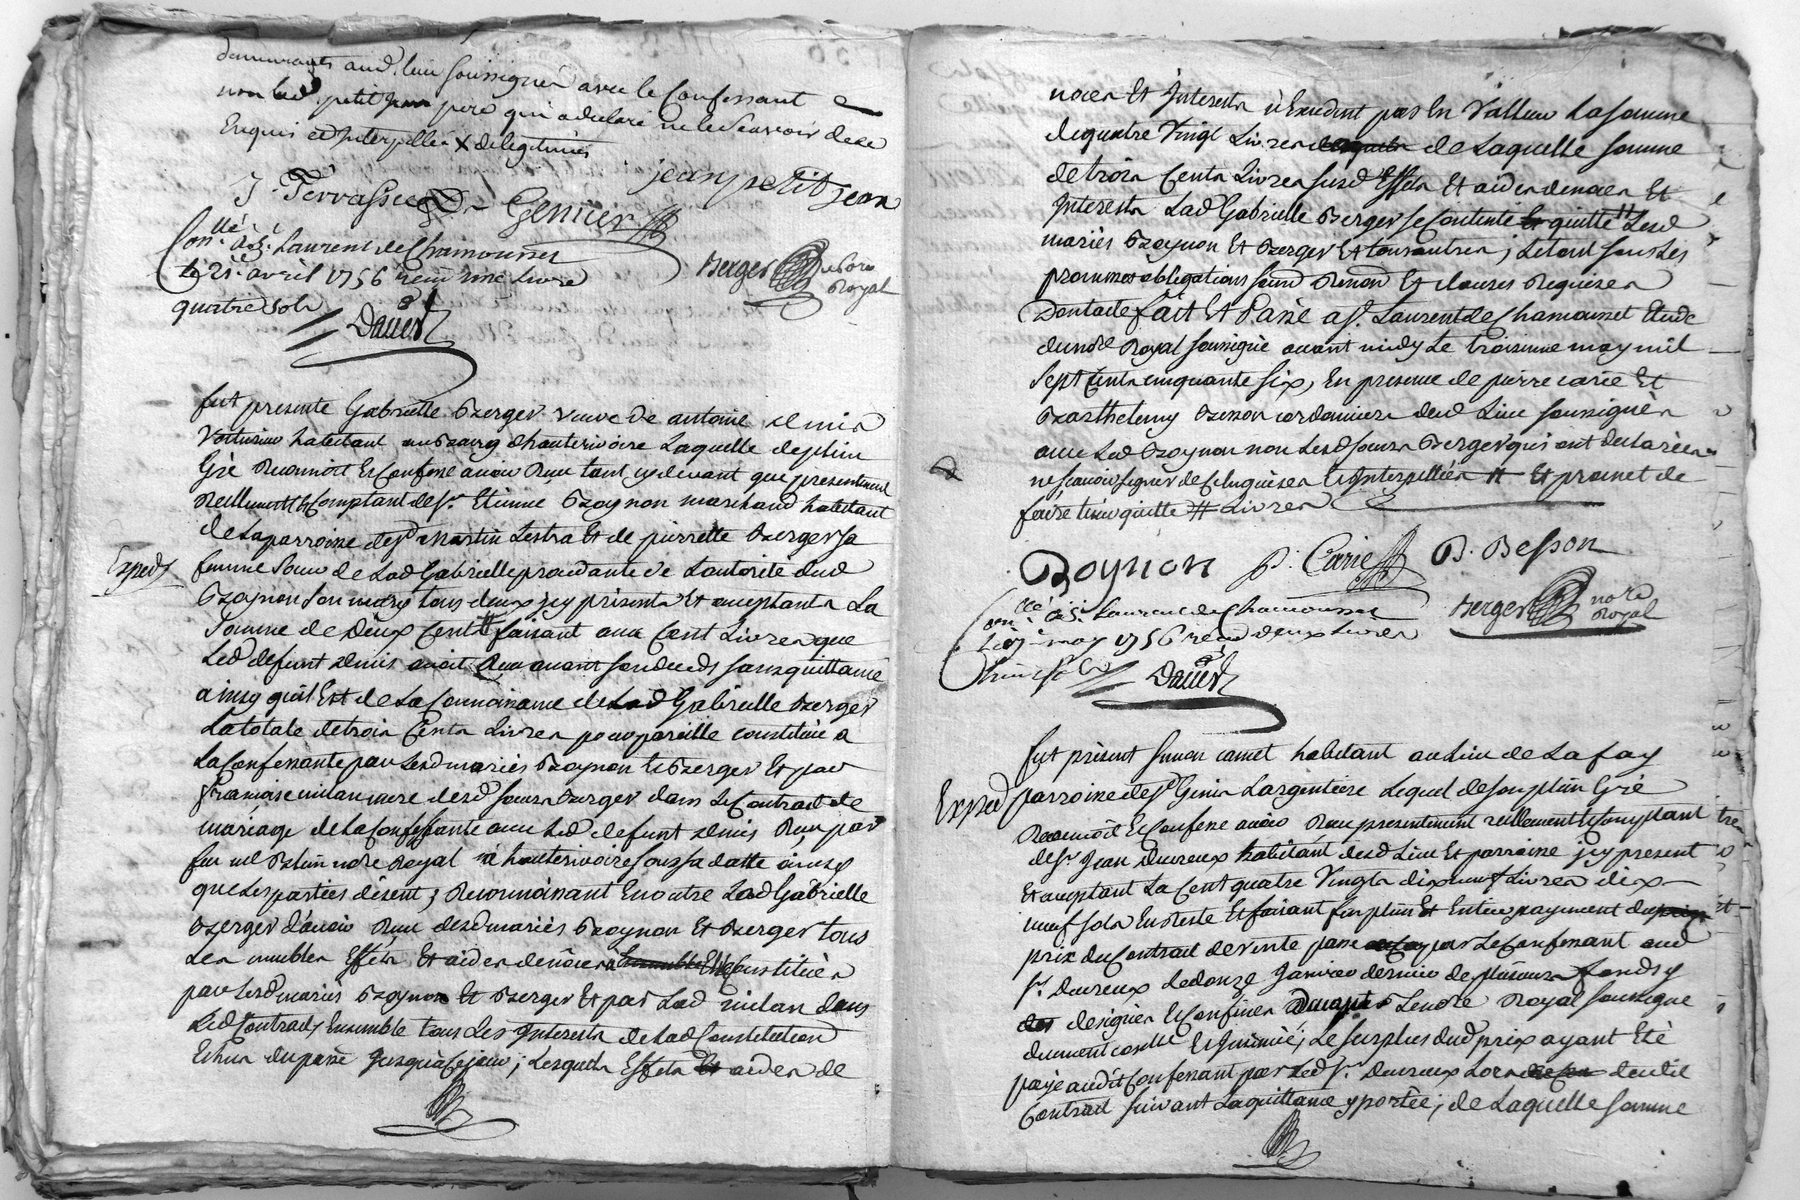 demeurants aud. lieu soussignés avec le Confessant
non led. petit jean pere qui a declaré ne le scavoir de ce
Enquis et Interpellé X de legitimes
jean petit jean
J. Terrasse
Genier
Con.lle à S.t Laurent de Chamousset
le 21.e avril 1756 reçu une Livre
quatre sols
Dauer
Berger no.re Royal
fut presente Gabrielle Berger veuve de antoine
Voiturier habitant au Bourg d'hauterivoire Laquelle de plein
Gré Reconnoit et Confesse avoir Reçu tant cy devant que presentement
Reellement et Comptant de S.r Etienne Boynon marchand habitant
de La parroisse de S.t Martin Lestra Et de pierrette Berger sa
Exped
femme soeur de Lad Gabrielle procedante de L'autorité dud
Boynon son mary tous deux icy presents Et acceptants La
Somme de Deux Cents faisant avec Cent Livres que
Led defunt avoit Reçu avant son deceds sans quittance
ainsy quil Est de La Connoissance de Lad Gabrielle Berger
La totale de trois Cents Livres pour pareille constituée a
La Confessante par Lesd mariés Boynon et Berger Et par
françoise milan mere desd soeurs Berger dans Le Contract de
mariage de La Confessante avec Led defunt Reçu par
feu me no.re Royal à hauterivoire sous sa datte ainsy
que Les parties disent; Reconnoissant En outre Lad Gabrielle
Berger d'avoir Reçu desd mariés Boynon Et Berger tous
Les meubles Effets Et aides de nôces Constitués
par Lesd mariés Boynon Et Berger Et par Lad milan dans
Led Contract, Ensemble tous Les Interests de Lad Constitution
Echus du passé Jusqu'à Ce jour; Lesquels Effets aides de
noces Et Interests n'Excedent pas En Valleur La somme
de quatre Vingt Livres de Laquelle somme
de trois Cents Livres susd Effets Et aides de noces Et
Interests Lad Gabrielle Berger se Contente quitte Lesd
mariés Boynon Et Berger Et tous autres, Le tout sous Les
promesses obligations soum Renon Et clauses Requises
Dont acte fait Et Passé a S.t Laurent de Chamousset Etude
du no.re Royal soussigné avant midy Le troisieme may mil
sept Cents cinquante six, En presence de pierre carie Et
Barthelemy Besson cordonniers dud Lieu soussignés
avec Led Boynon non Lesd soeurs Berger qui ont declarées
ne scavoir signer de Ce Enquises Et Interpellées # Et promet de
faire tenir quitte # Livres
Boynon
P. Carie
B. Besson
Con.lle à S.t Laurent de Chamousset
may 1756 reçu deux Livres
Dauer
Berger no.re Royal
fut présent Simon camet habitant au Lieu de La fay
Exped
parroisse de S.t Genis Largentiere Lequel de son plein Gré
Reconnoit Et Confesse avoir Reçu presentement reellement Et Comptant
de S.r Jean Ducreux habitant desd Lieu Et parroisse icy present
Et acceptant La Cent quatre Vingts dix neuf Livres dix
neuf sols En Reste Et faisant Fin plein Et Entier payement du
prix du Contract de vente passé par Le Confessant aud
S.r Ducreux Le donze Janvier dernier de plusieurs fonds y
designés Et Confinés Le no.re Royal soussigné
dument conllé Et Insinué; Le surplus dud prix ayant Eté
payé audit Confessant par Led S.r Ducreux Lors dud
Contract suivant La quittance y portée; de Laquelle somme